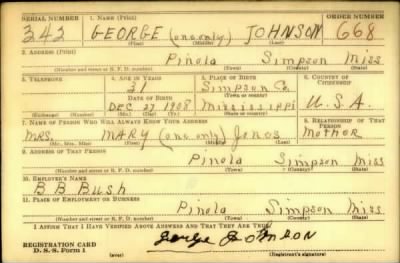 SERIAL NUMBER 1. NAME (Print) ORDER NUMBER
343 GEORGE (one only) JOHNSON 668
(First) (Middle) (Last)
2. ADDRESS (Print)
Pinola Simpson Miss
(Number and street or R. F. D. number) (Town) (County) (State)
3. TELEPHONE 4. AGE IN YEARS 5. PLACE OF BIRTH 6. COUNTRY OF CITIZENSHIP
31 Simpson Co.
DATE OF BIRTH (Town or county)
Dec 27 1908 Mississippi U.S.A.
(Exchange) (Number) (Mo.) (Day) (Yr.) (State or country)
7. NAME OF PERSON WHO WILL ALWAYS KNOW YOUR ADDRESS 8. RELATIONSHIP OF THAT PERSON
Mrs. MARY (one only) Jones Mother
(Mr., Mrs., Miss) (First) (Middle) (Last)
9. ADDRESS OF THAT PERSON
Pinola Simpson Miss
(Number and street or R. F. D. number) (Town) (County) (State)
10. EMPLOYER'S NAME
B B Bush
11. PLACE OF EMPLOYMENT OR BUSINESS
Pinola Simpson Miss
(Number and street or R. F. D. number) (Town) (County) (State)
I AFFIRM THAT I HAVE VERIFIED ABOVE ANSWERS AND THAT THEY ARE TRUE.
George Johnson
REGISTRATION CARD
D. S. S. Form 1 (over) (Registrant's signature)